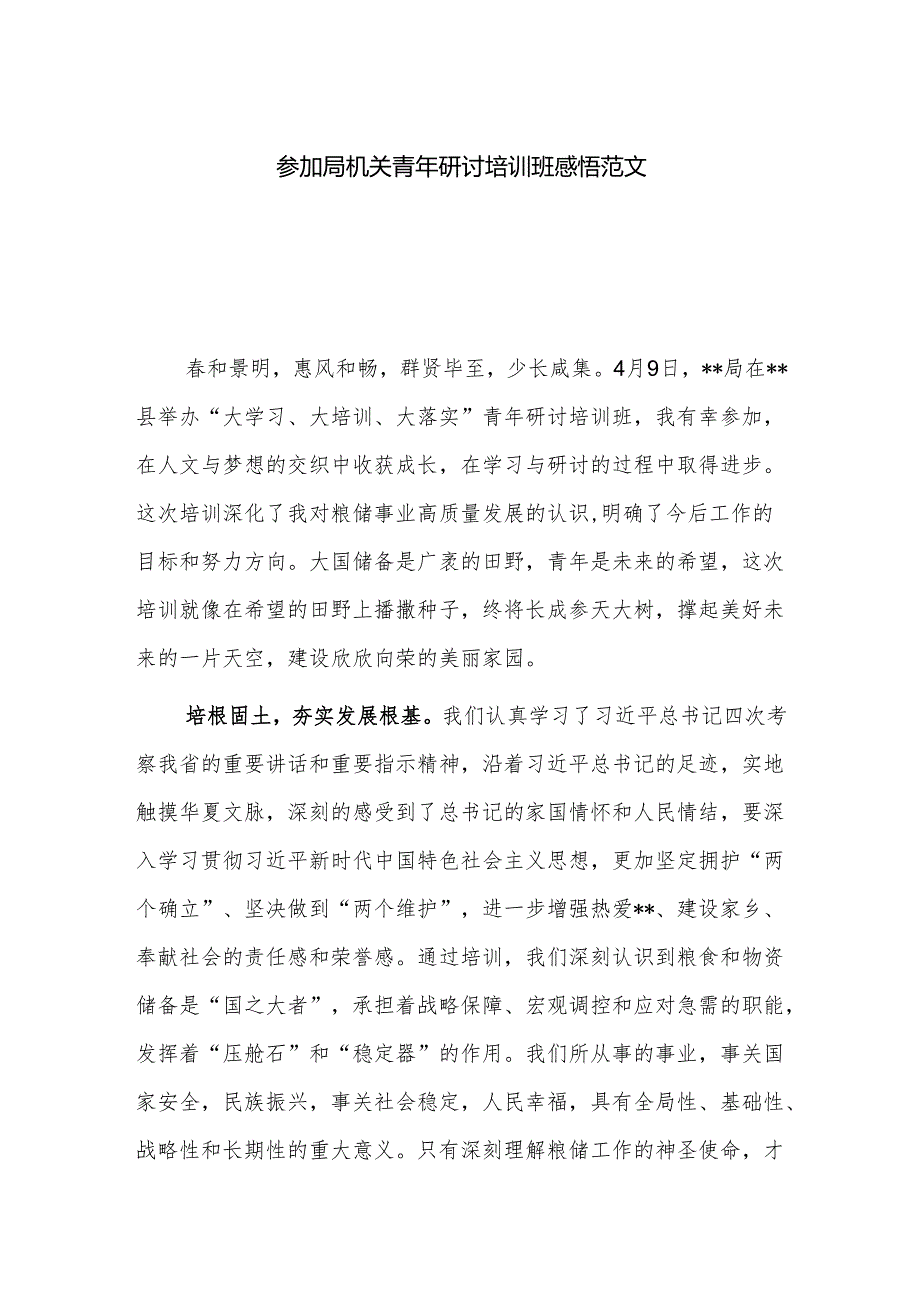 参加局机关青年研讨培训班感悟范文
春和景明，惠风和畅，群贤毕至，少长咸集。4月9日，**局在**
县举办“大学习、大培训、大落实”青年研讨培训班，我有幸参加，
在人文与梦想的交织中收获成长，在学习与研讨的过程中取得进步。
这次培训深化了我对粮储事业高质量发展的认识,明确了今后工作的
目标和努力方向。大国储备是广袤的田野，青年是未来的希望，这次
培训就像在希望的田野上播撒种子，终将长成参天大树，撑起美好未
来的一片天空，建设欣欣向荣的美丽家园。
培根固土，夯实发展根基。我们认真学习了习近平总书记四次考
察我省的重要讲话和重要指示精神，沿着习近平总书记的足迹，实地
触摸华夏文脉，深刻的感受到了总书记的家国情怀和人民情结，要深
入学习贯彻习近平新时代中国特色社会主义思想，更加坚定拥护“两
个确立”、坚决做到“两个维护”，进一步增强热爱**、建设家乡、
奉献社会的责任感和荣誉感。通过培训，我们深刻认识到粮食和物资
储备是“国之大者”，承担着战略保障、宏观调控和应对急需的职能，
发挥着“压舱石”和“稳定器”的作用。我们所从事的事业，事关国
家安全，民族振兴，事关社会稳定，人民幸福，具有全局性、基础性、
战略性和长期性的重大意义。只有深刻理解粮储工作的神圣使命，才